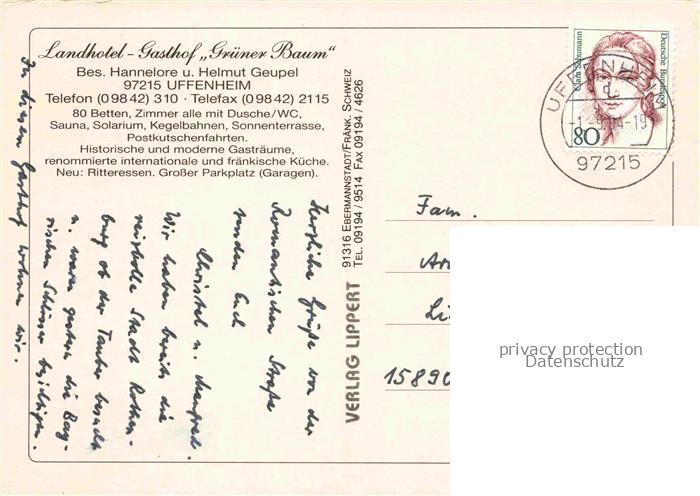 Landhotel - Gasthof „Grüner Baum“
Bes. Hannelore u. Helmut Geupel
97215 UFFENHEIM
Telefon (0 98 42) 310 · Telefax (0 98 42) 2115
80 Betten, Zimmer alle mit Dusche/WC,
Sauna, Solarium, Kegelbahnen, Sonnenterrasse,
Postkutschenfahrten.
Historische und moderne Gasträume,
renommierte internationale und fränkische Küche.
Neu: Ritteressen. Großer Parkplatz (Garagen).
Herzliche Grüße von der
Romantischen Straße
senden Euch
Christel u. Manfred.
Wir haben bereits die
reizvolle Stadt Rothen-
burg ob der Tauber besucht
u. waren gestern die Bay-
rischen Schlösser besichtigen.
In diesem Gasthof wohnen wir.
VERLAG LIPPERT
91316 EBERMANNSTADT/FRÄNK. SCHWEIZ
TEL. 09194 / 9514 FAX 09194 / 4626
Clara Schumann
Deutsche Bundespost
80
UFFENHEIM
97215
Fam.
15890
privacy protection
Datenschutz